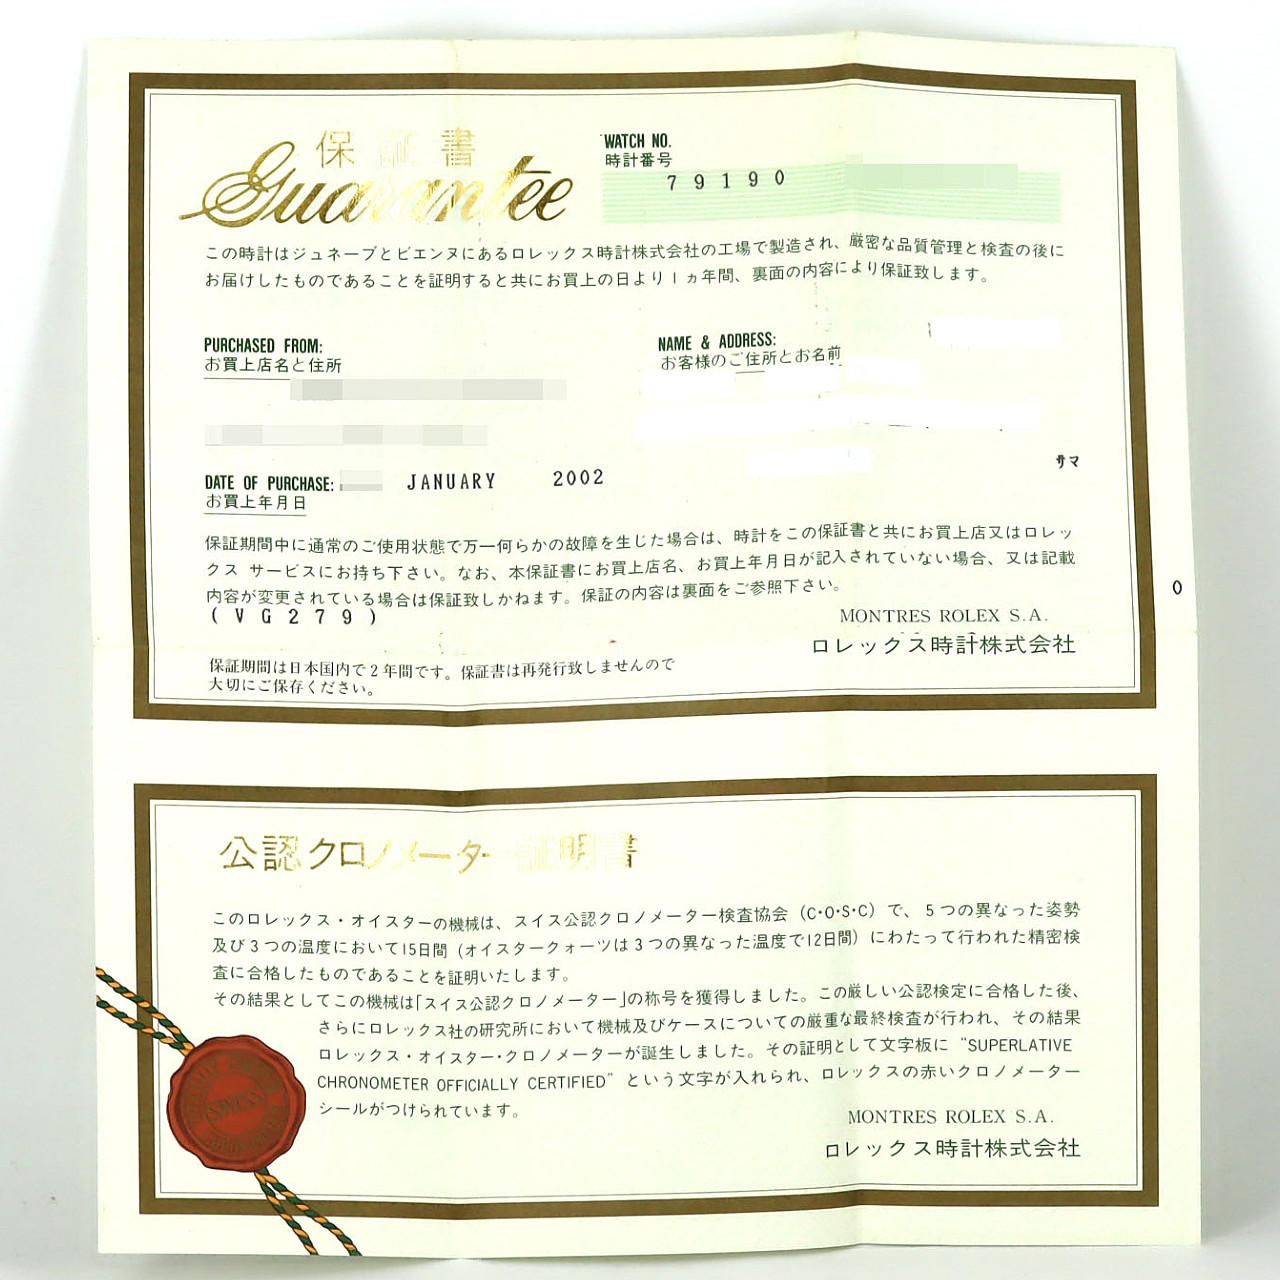 保証書
Guarantee
WATCH NO.
時計番号
79190
この時計はジュネーブとビエンヌにあるロレックス時計株式会社の工場で製造され、厳密な品質管理と検査の後に
お届けしたものであることを証明すると共にお買上の日より1ヵ年間、裏面の内容により保証致します。
PURCHASED FROM:
お買上店名と住所
NAME & ADDRESS:
お客様のご住所とお名前
サマ
DATE OF PURCHASE: JANUARY 2002
お買上年月日
保証期間中に通常のご使用状態で万一何らかの故障を生じた場合は、時計をこの保証書と共にお買上店又はロレッ
クス サービスにお持ち下さい。なお、本保証書にお買上店名、お買上年月日が記入されていない場合、又は記載
内容が変更されている場合は保証致しかねます。保証の内容は裏面をご参照下さい。
(VG279)
0
MONTRES ROLEX S.A.
ロレックス時計株式会社
保証期間は日本国内で2年間です。保証書は再発行致しませんので
大切にご保存ください。
公認クロノメーター 証明書
このロレックス・オイスターの機械は、スイス公認クロノメーター検査協会（C・O・S・C）で、5つの異なった姿勢
及び3つの温度において15日間（オイスタークォーツは3つの異なった温度で12日間）にわたって行われた精密検
査に合格したものであることを証明いたします。
その結果としてこの機械は「スイス公認クロノメーター」の称号を獲得しました。この厳しい公認検定に合格した後、
さらにロレックス社の研究所において機械及びケースについての厳重な最終検査が行われ、その結果
ロレックス・オイスター・クロノメーターが誕生しました。その証明として文字板に “SUPERLATIVE
CHRONOMETER OFFICIALLY CERTIFIED” という文字が入れられ、ロレックスの赤いクロノメーター
シールがつけられています。
MONTRES ROLEX S.A.
ロレックス時計株式会社
SWISS